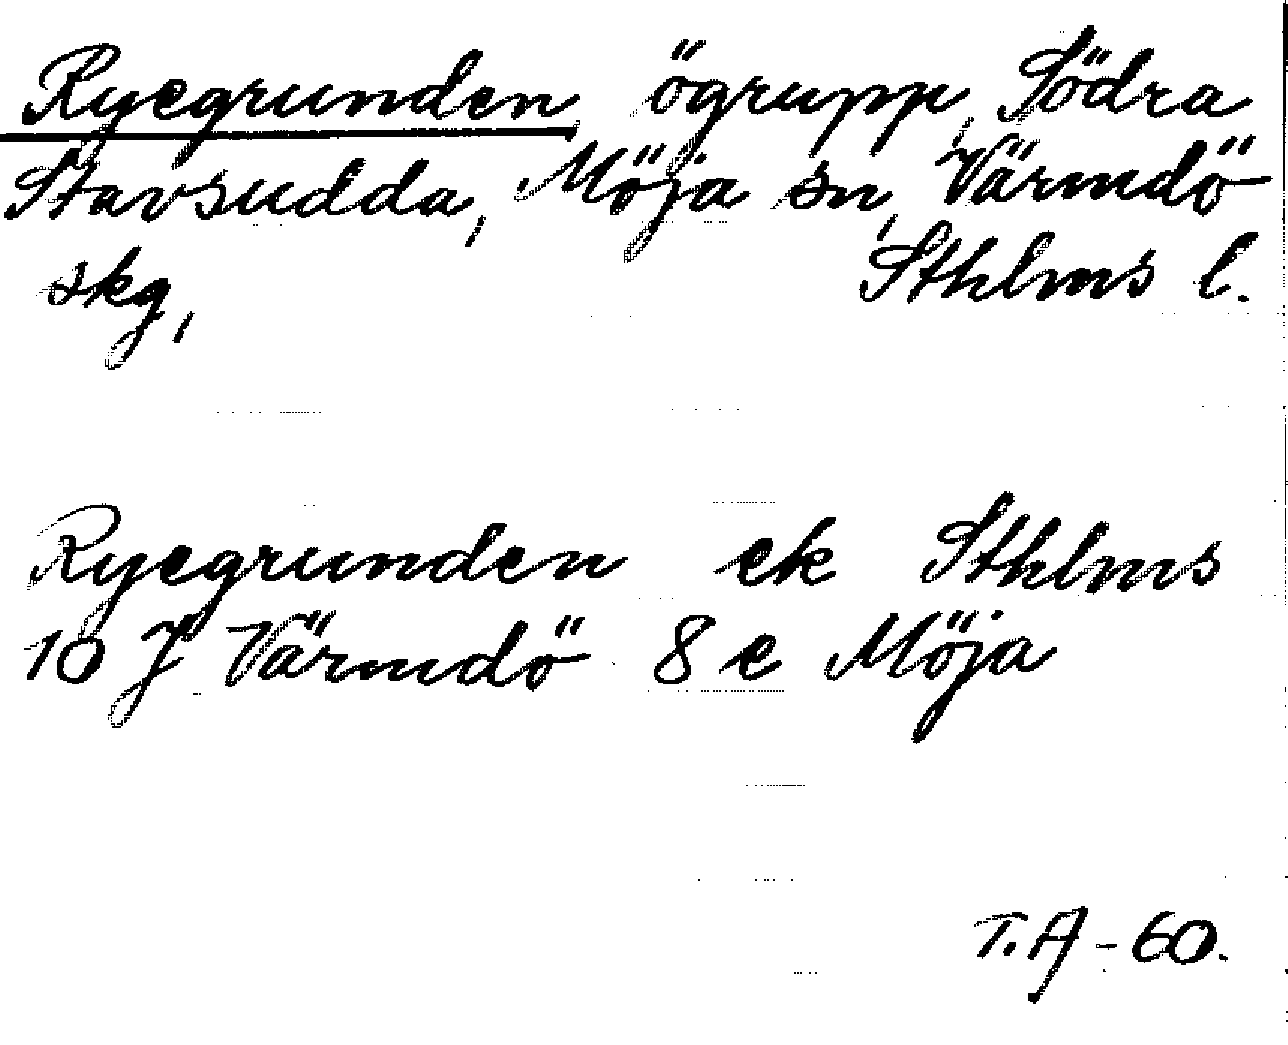 Ryegrunden, ögrupp, Södra
Stavsudda, Möja sn, Värmdö
skg, Sthlms l.
Ryegrunden ek Sthlms
10 J Värmdö 8 e Möja
T.A-60.